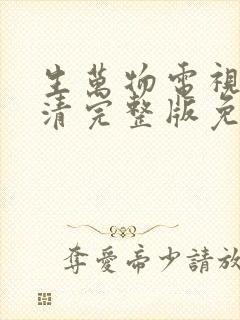 生萬物電視
清完整版免
奪愛帝少請放